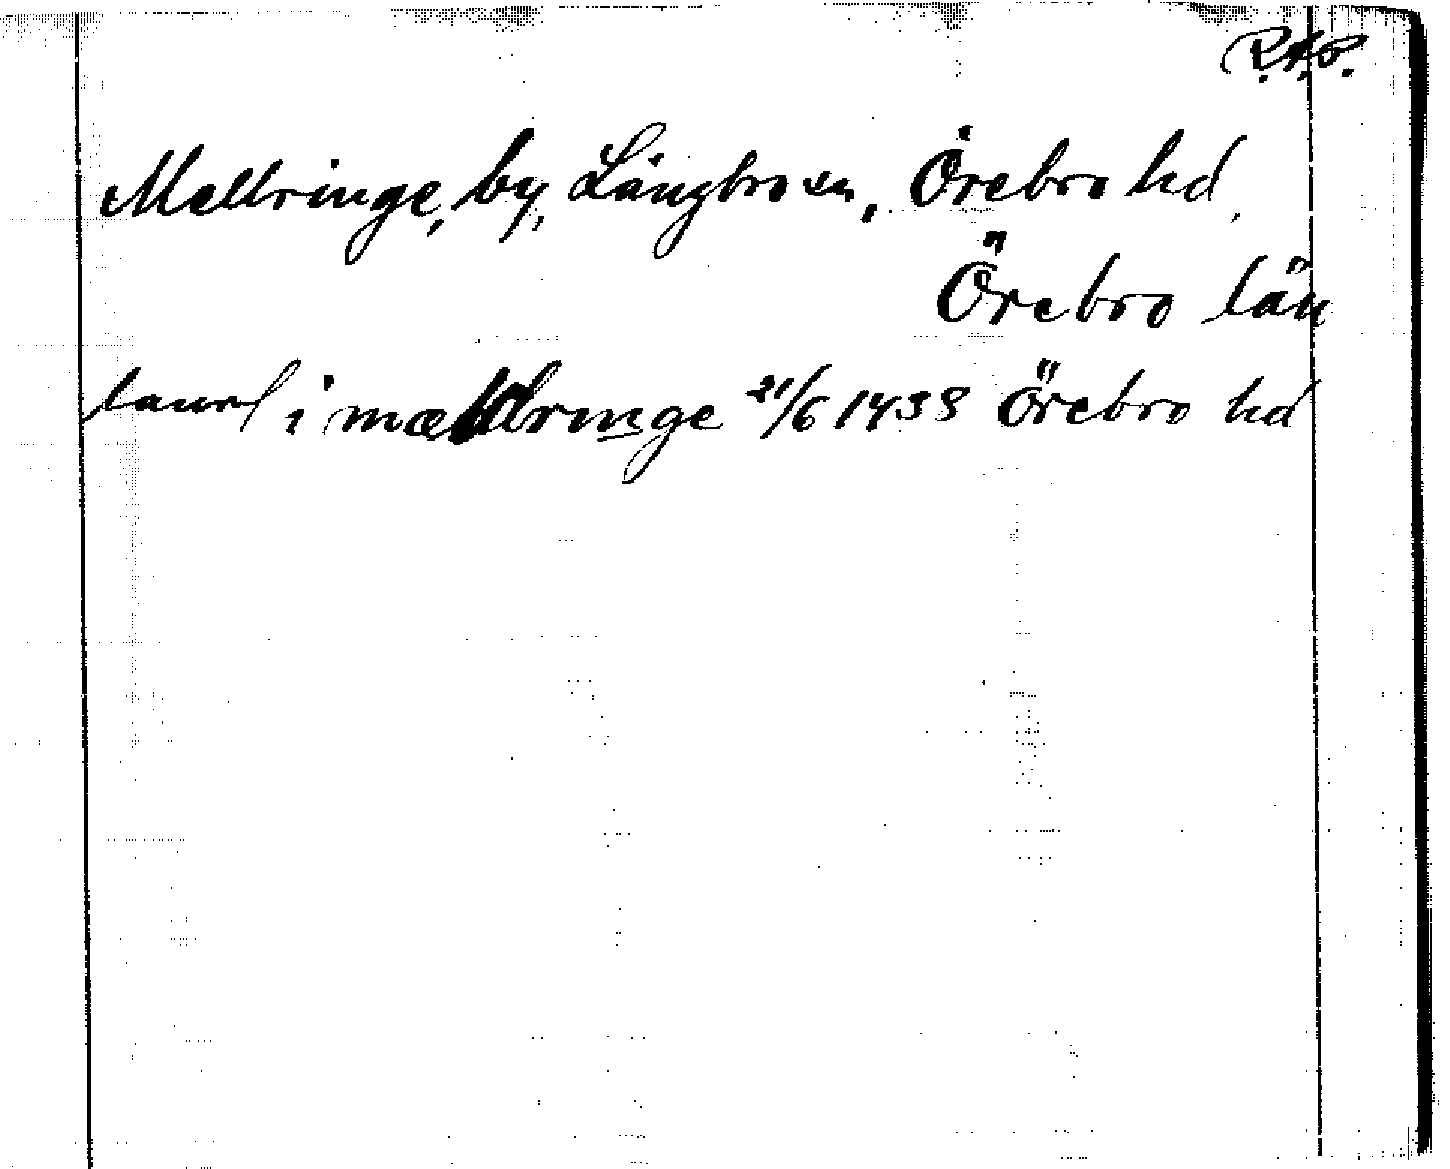 R.A.P.
Mellringe, by, Längbro sn, Örebro hd,
Örebro län
i mællbringe 21/6 1438 Örebro hd